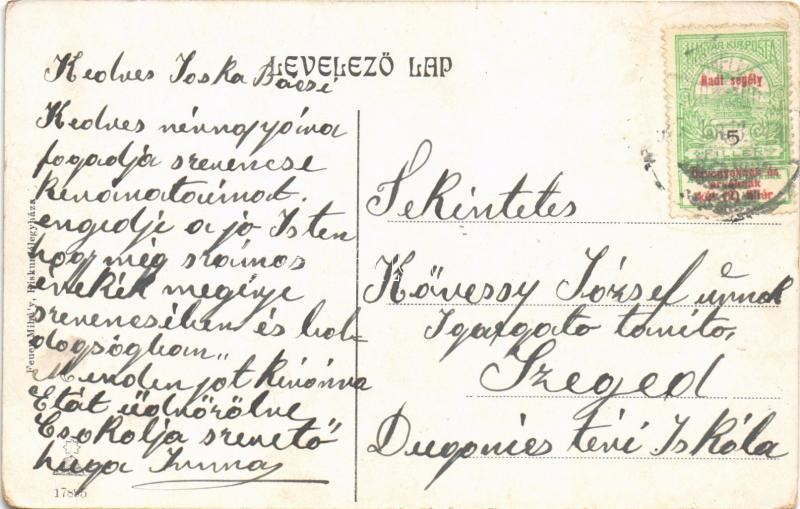 LEVELEZŐ LAP
Kedves Joska Bácsi
Kedves névnapjára
fogadja szerencse
kivánataimat.
engedje a jo Isten
hogy még számos
évekék megérje
szerencsében és bol-
dogságban"
Minden jot kivánva
Etát üdvözölve
Csokolja szerető
huga Imma
Tekintetes
Kővessy József urnak
Igazgato tanito,
Szeged
Dugonics téri Iskóla
MAGYAR KIR. POSTA
Hadi segély
5
FILLÉR
Özvegyeknek és
árváknak
két (2) fillér
Feuer Mihály, Kiskunfélegyháza